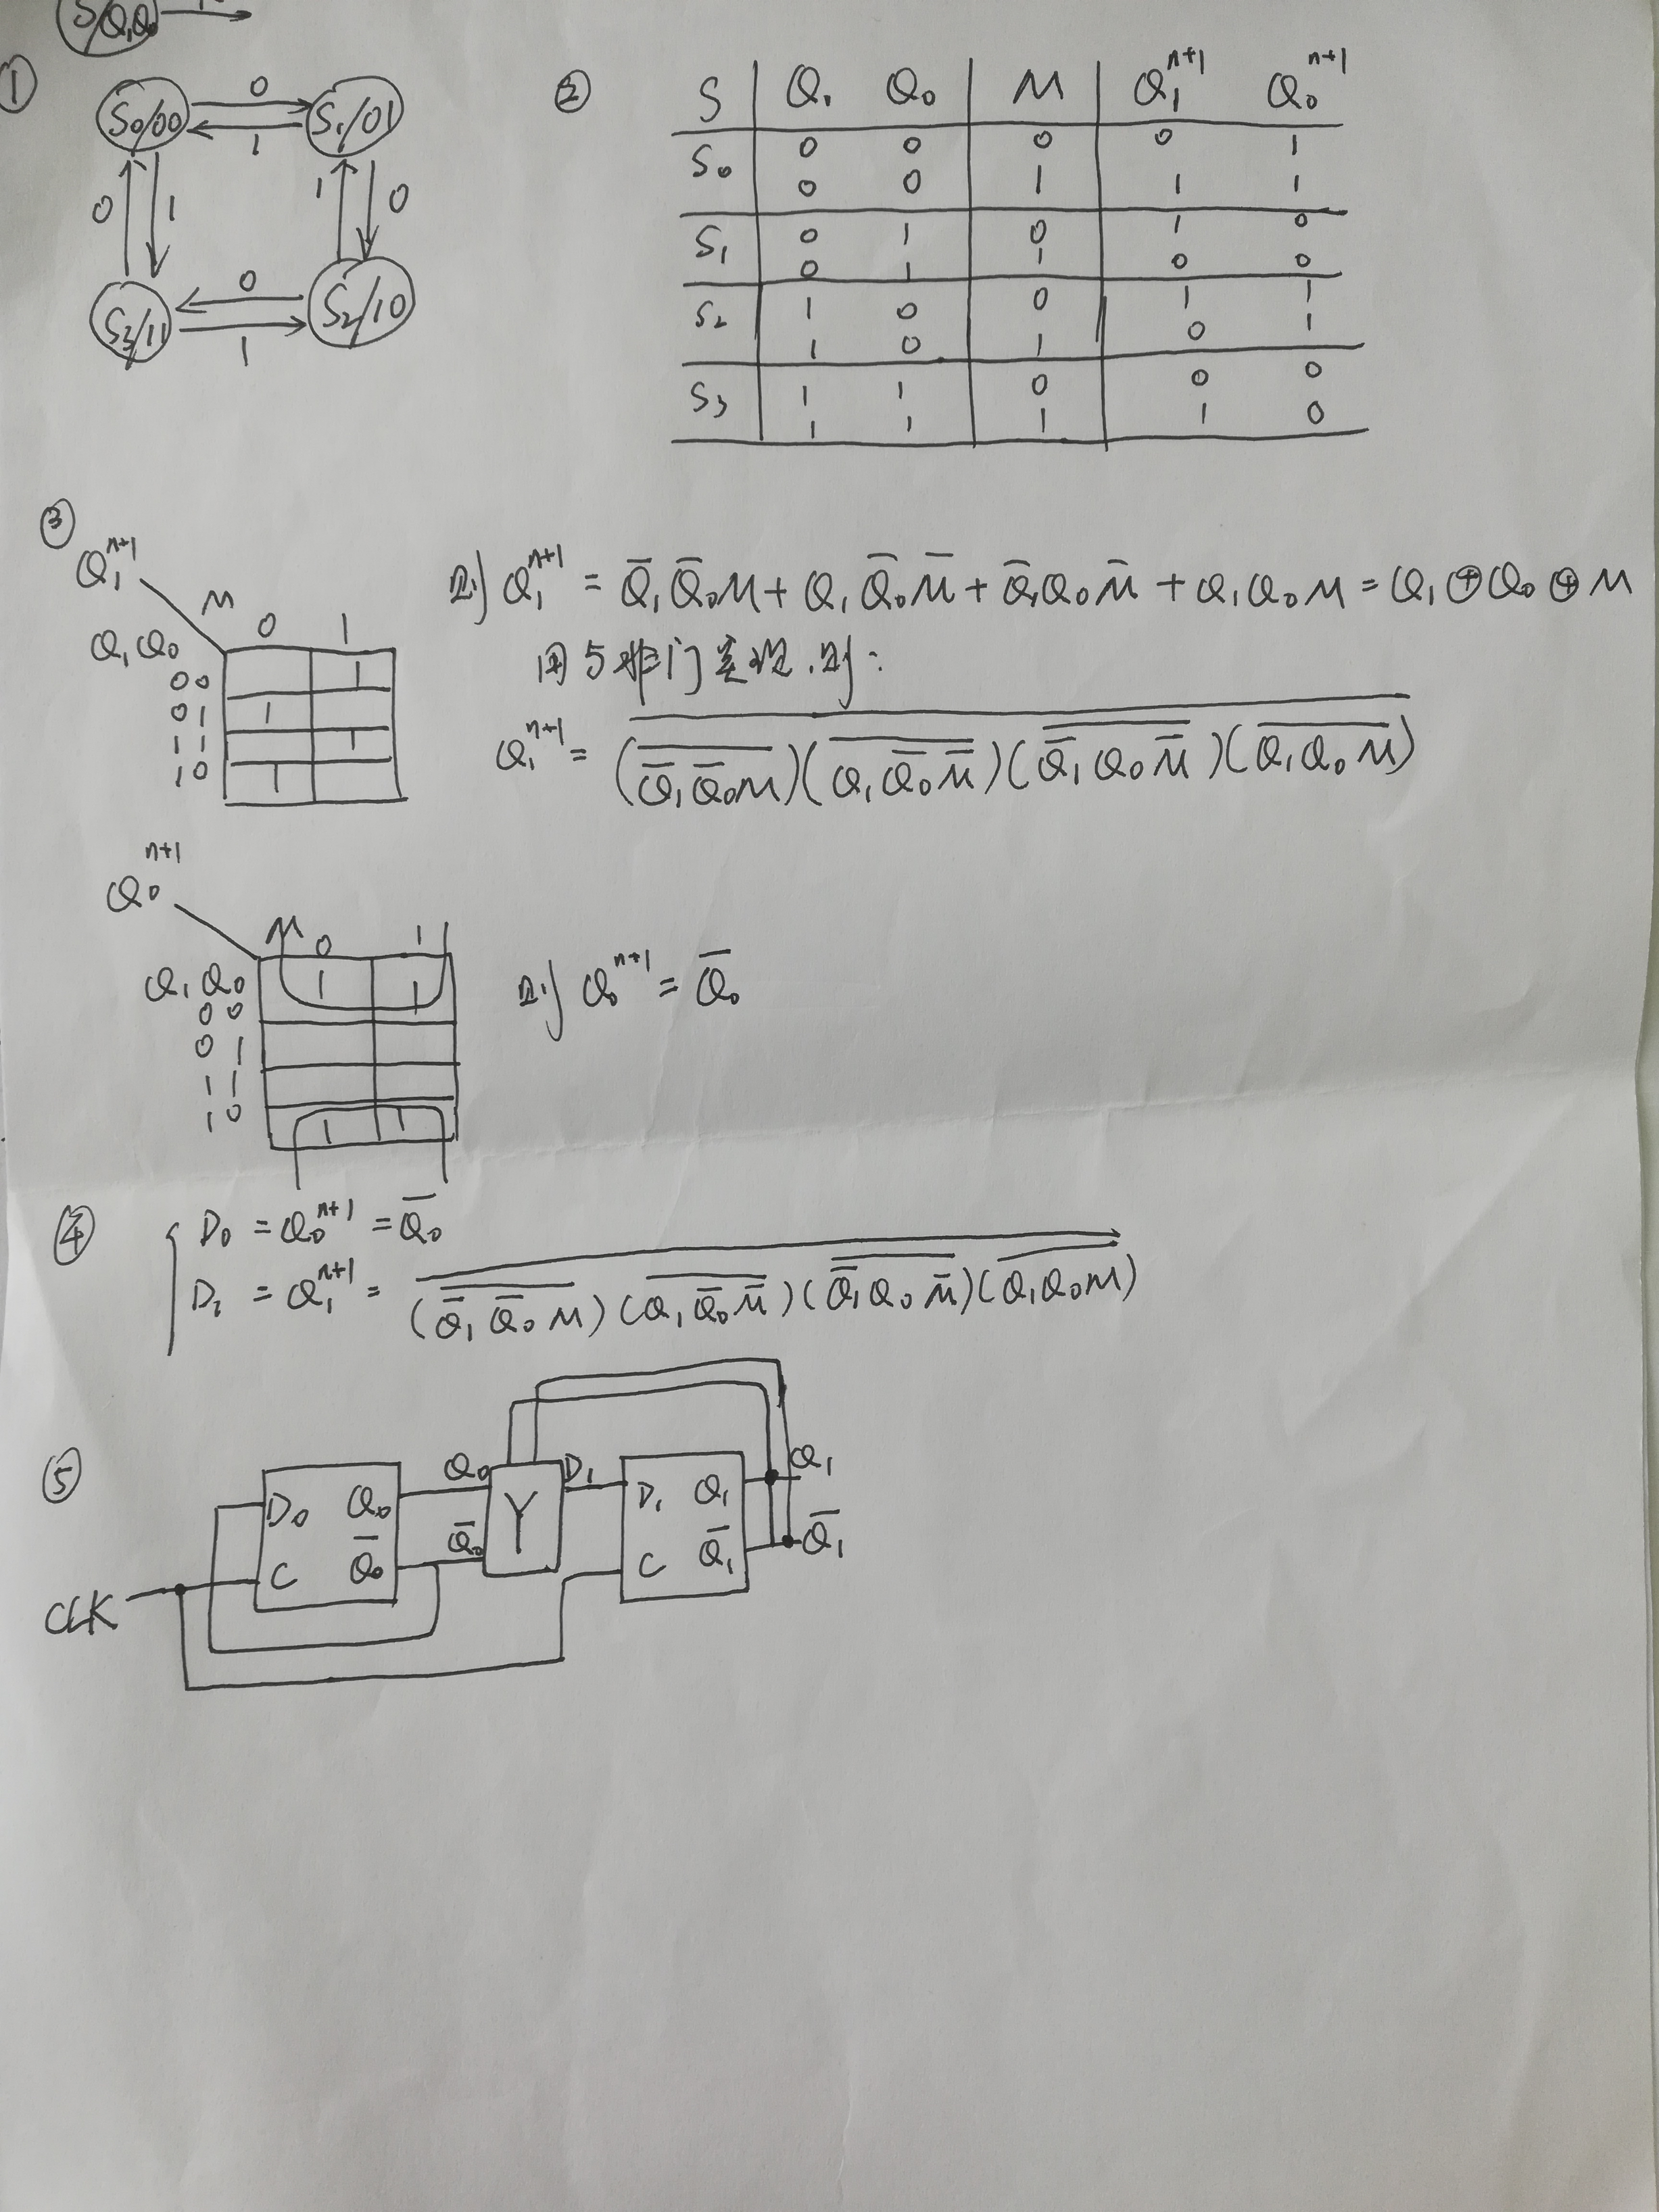 S/Q₁Q₀
①
S₀/00 0 1 S₁/01
0 1 1 0
S₃/11 0 1 S₂/10
② S Q₁ Q₀ M Q₁ⁿ⁺¹ Q₀ⁿ⁺¹
S₀ 0 0 0 0 1
0 0 1 1 1
S₁ 0 1 0 1 0
0 1 1 0 0
S₂ 1 0 0 1 1
1 0 1 0 1
S₃ 1 1 0 0 0
1 1 1 1 0
③
Q₁ⁿ⁺¹
M 0 1
Q₁Q₀
00 1
01 1
11 1
10 1
则 Q₁ⁿ⁺¹ = Q̅₁Q̅₀M + Q₁Q̅₀M̅ + Q̅₁Q₀M̅ + Q₁Q₀M = Q₁⊕Q₀⊕M
用与非门实现,则:
Q₁ⁿ⁺¹ = \overline{(\overline{Q̅₁Q̅₀M})(\overline{Q₁Q̅₀M̅})(\overline{Q̅₁Q₀M̅})(\overline{Q₁Q₀M})}
Q₀ⁿ⁺¹
M 0 1
Q₁Q₀
00 1 1
01
11
10 1 1
则 Q₀ⁿ⁺¹ = Q̅₀
④ D₀ = Q₀ⁿ⁺¹ = Q̅₀
D₁ = Q₁ⁿ⁺¹ = \overline{(\overline{Q̅₁Q̅₀M})(\overline{Q₁Q̅₀M̅})(\overline{Q̅₁Q₀M̅})(\overline{Q₁Q₀M})}
⑤
D₀ Q₀ Q₀ Y D₁ D₁ Q₁ Q₁
C Q̅₀ Q̅₀ C Q̅₁ Q̅₁
CLK